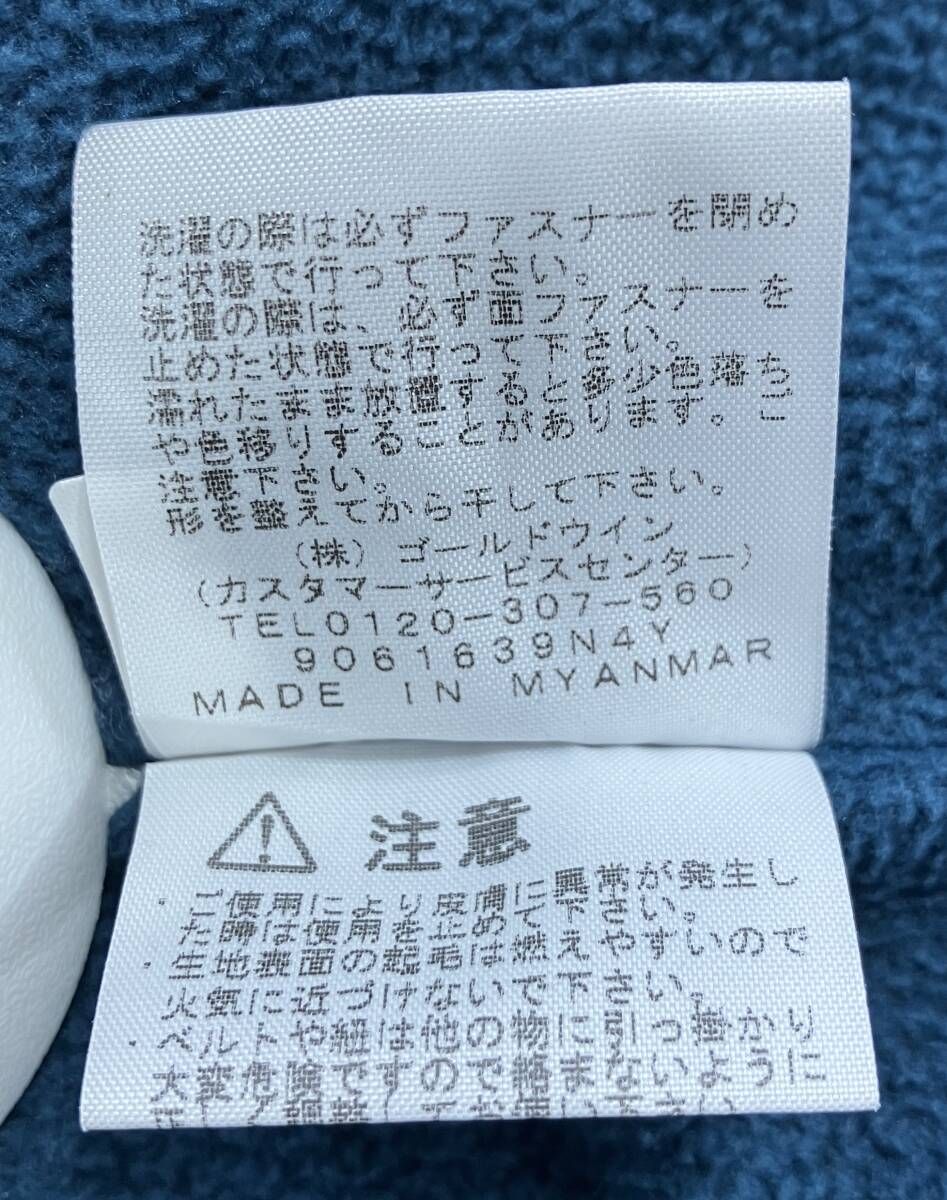 洗濯の際は必ずファスナーを閉め
た状態で行って下さい。
洗濯の際は、必ず面ファスナーを
止めた状態で行って下さい。
濡れたまま放置すると多少色落ち
や色移りすることがあります。ご
注意下さい。
形を整えてから干して下さい。
(株) ゴールドウイン
(カスタマーサービスセンター)
TEL0120-307-560
9061639N4Y
MADE IN MYANMAR
注意
・ご使用により皮膚に異常が発生し
た時は使用を止めて下さい。
・生地表面の起毛は燃えやすいので
火気に近づけないで下さい。
・ベルトや紐は他の物に引っ掛かり
大変危険ですので絡まないように